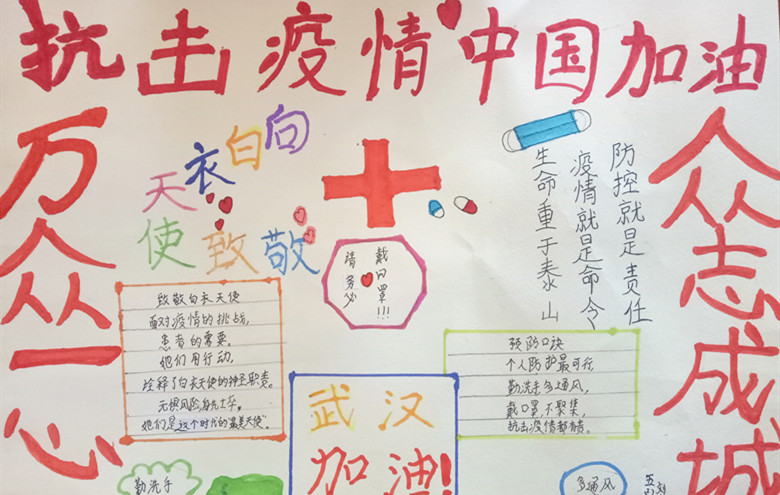 抗击疫情中国加油
万众一心
众志成城
向白衣天使致敬
防控就是责任
疫情就是命令
生命重于泰山
请务必
戴口罩!!!
致敬白衣天使
面对疫情的挑战,
患者的需要,
她们用行动,
诠释了白衣天使的神圣职责。
无惧风险身先士卒。
她们是这个时代的最美天使"。
预防口诀
个人防护最可行,
勤洗手多通风,
戴口罩,不聚集,
抗击疫情都赞。
武汉
加油!
勤洗手
多通风